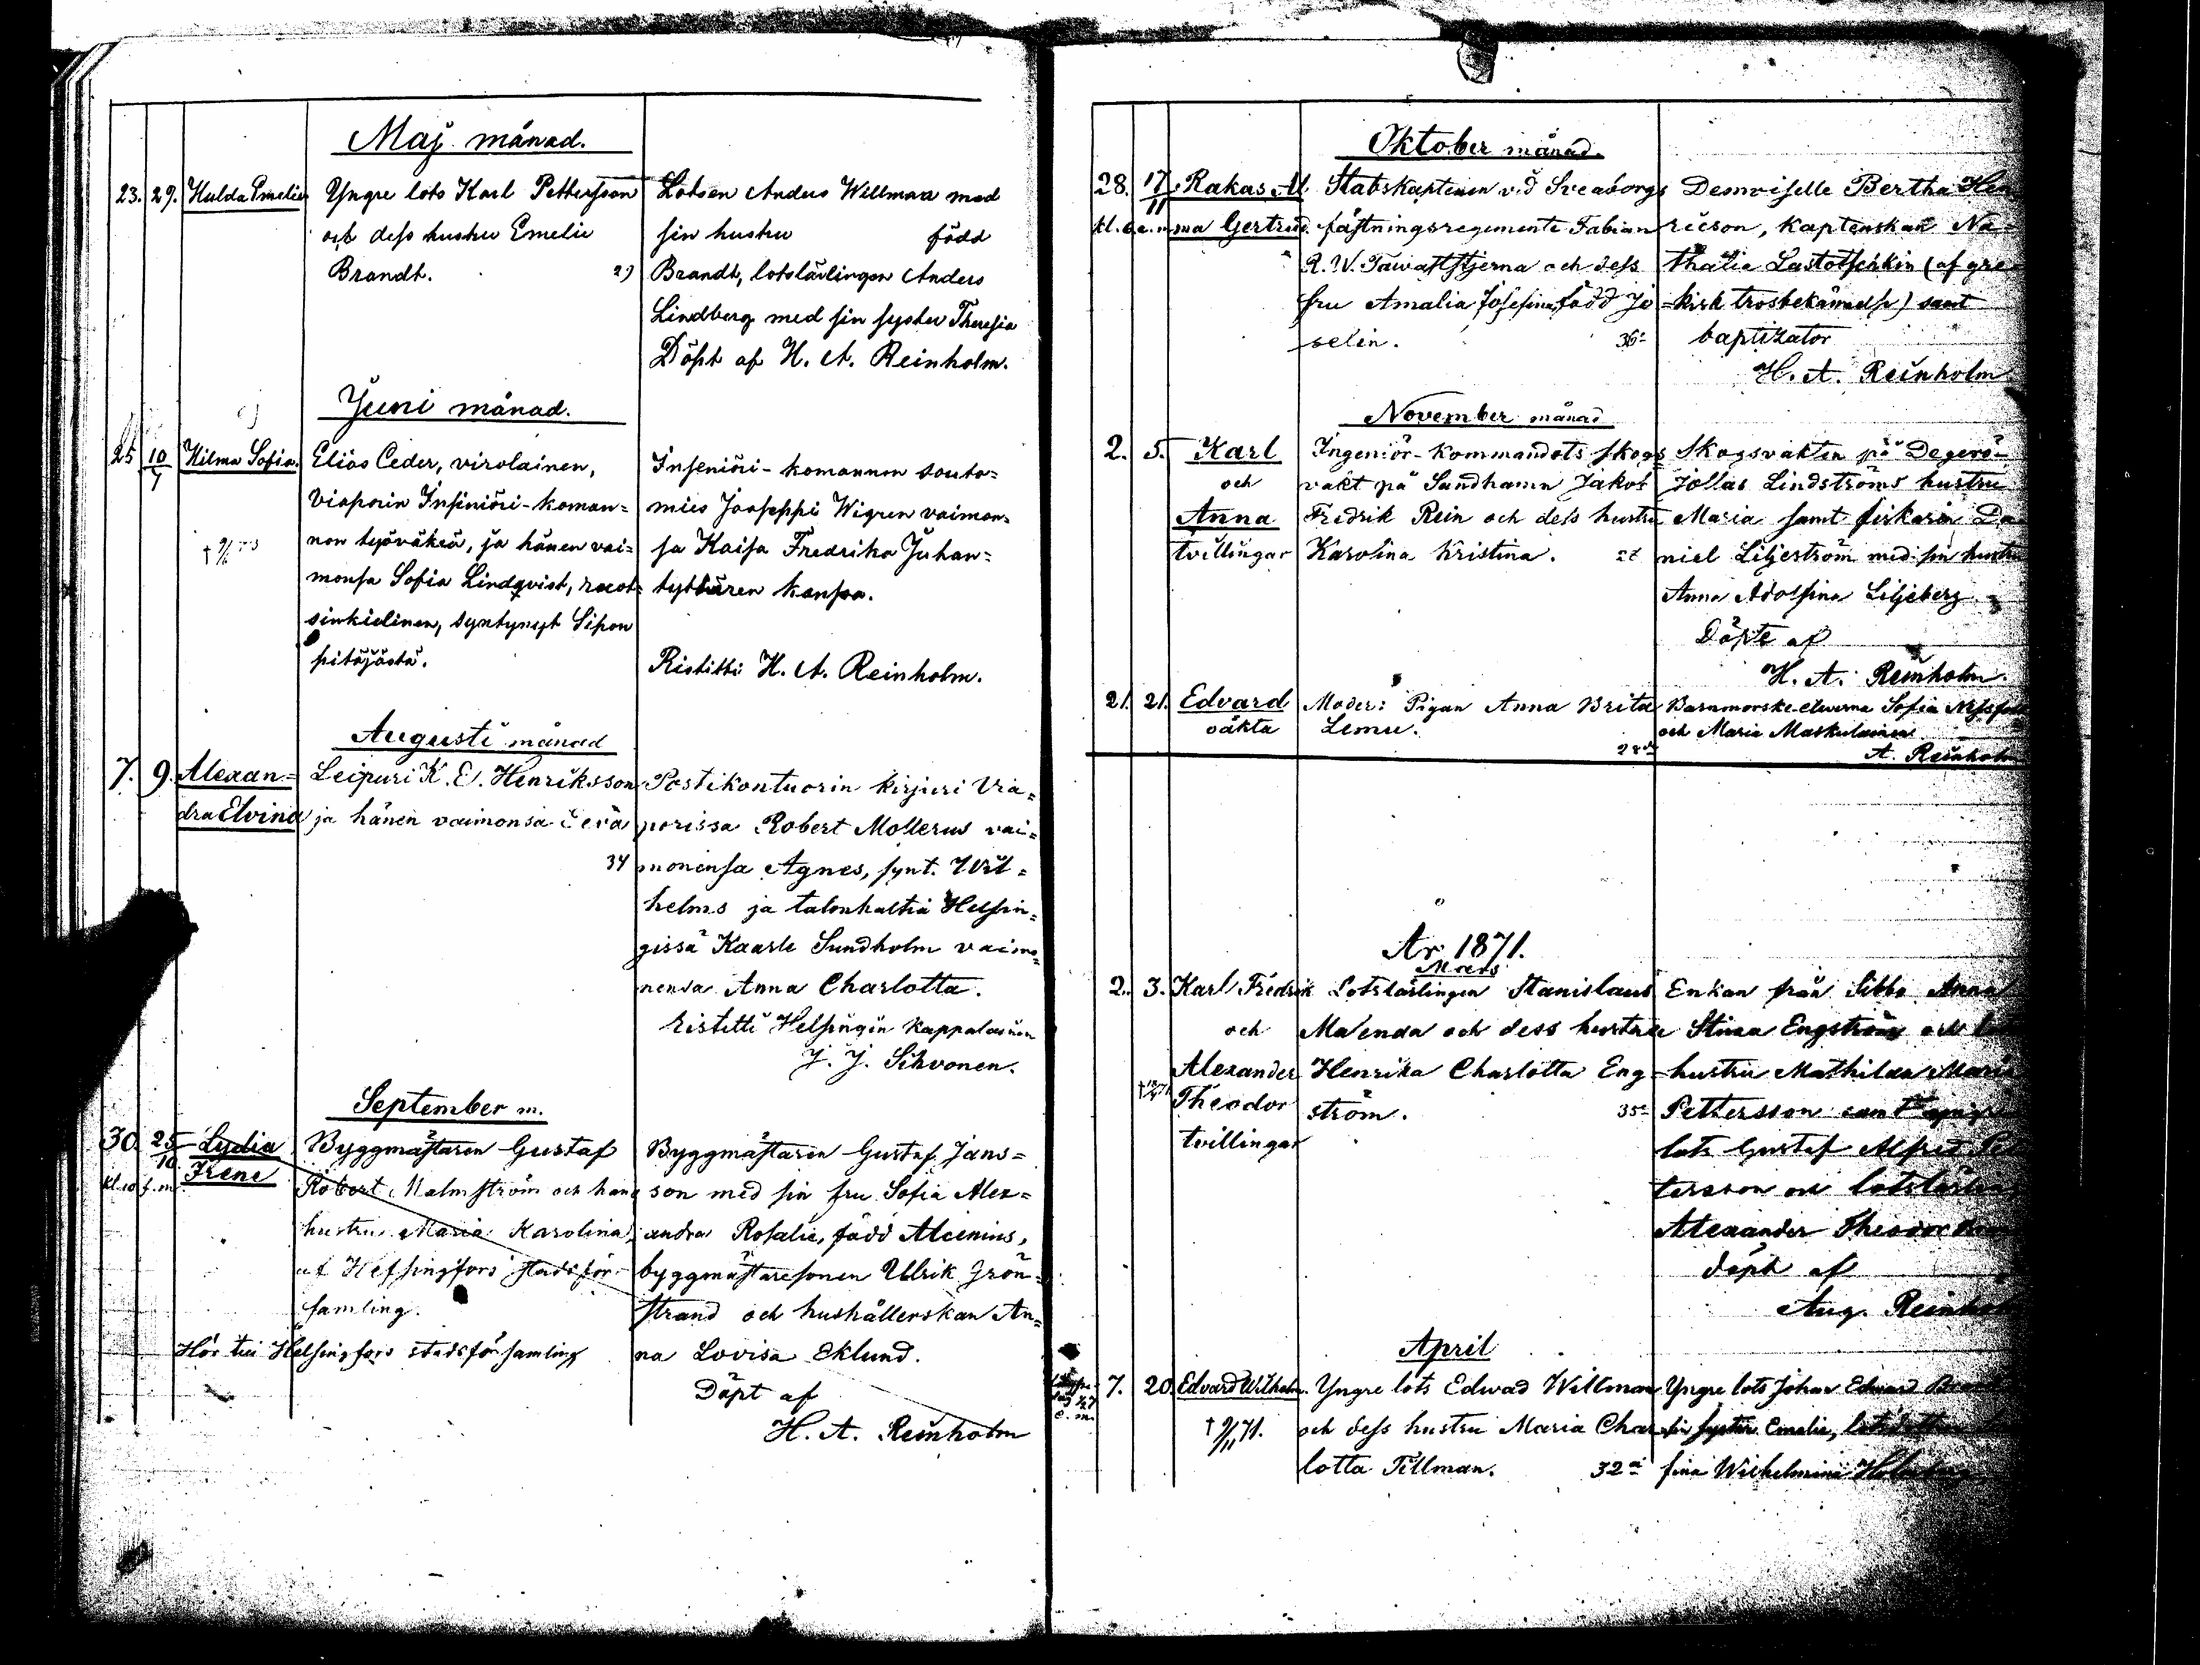 Maj månad.
23. 29. Hulda Emelie Yngre lots Karl Pettersson Lotsen Anders Wellman med
och dess hustru Emelie sin hustru född
Brandt. 29 Brandt, lotslärlingen Anders
Lindberg med sin syster Theresia
Döpt af H. A. Reinholm.
Juni månad.
25 10/7 Hilma Sofia. Eliås Ceder, virolainen, Inseniöri-komannon souta=
Viaporin Insiniöri-koman= mies Jooseppi Wigren vaimon=
non työväkeä, ja hänen vai= sa Kaisa Fredrika Juhan=
monsa Sofia Lindqvist, ruot= tyttären kanssa.
sinkielinen, syntynyt Sipon
pitäjästä. Ristitti H. A. Reinholm.
Augusti månad
7. 9. Alexan= Leipuri K. E. Henriksson Postikontuorin kirjuri Via=
dra Elvina ja hänen vaimonsa Eeva porissa Robert Mollerus vai=
34 monensa Agnes, synt. Wil=
helms ja talonhaltia Helsin=
gissä Kaarle Sundholm vaimo=
nensa Anna Charlotta.
ristitti Helsingin kappalainen
J. J. Sihvonen.
September m.
30. 25/10 Lydia Byggmästaren Gustaf Byggmästaren Gustaf Jans=
kl. 10 f. m. Irene Robert Malmström och hans son med sin fru Sofia Alex=
hustru Maria Karolina, andra Rosalie, född Alcenius,
af Helsingfors stadsför= byggmästaresonen Ulrik Grön=
samling. strand och hushållerskan An=
Hör till Helsingfors stadsförsamling na Lovisa Eklund.
Döpt af
H. A. Reinholm
Oktober månad.
28. 17/11 Rakas Al Stabskaptenen vid Sveaborgs Demoiselle Bertha Hen
kl. 6 e. m. ma Gertrud. fästningsregemente Fabian ricson, kaptenskan Na=
R. W. Tawaststjerna och dess thalia Lastotschkin (af gre
fru Amalia Josefina född Jo =kisk trosbekännelse) samt
selin. 36= baptizator
H. A. Reinholm
November månad
2. 5. Karl Ingeniör-kommandots skogs Skogsvakten på Degerö=
och vakt på Sandhamn Jakob Jollas Lindströms hustru
Anna Fredrik Rein och dess hustru Maria samt fiskaren Da
tvillingar Karolina Kristina. niel Liljeström med sin hustru
Anna Adolfina Liljeberg
Döpte af
H. A. Reinholm.
21. 21. Edvard Moder: Pigan Anna Brita Barnmorske-eleverna Sofia
oäkta Lemu. och Maria Maskulainen
28 A. Reinholm
År 1871.
Mars
2. 3. Karl Fredrik Lotslärlingen Stanislaus Enkan från Sibbo Anna
och Malenda och dess hustru Stina Engström och
Alexander Henrika Charlotta Eng= hustru Mathilda Maria
Theodor ström. 35= Pettersson samt yngre
tvillingar lots Gustaf Alfred Pet
tersson och lotslärling
Alexander Theodor
döpt af
Aug. Reinholm
April
7. 20. Edvard Wilhelm. Yngre lots Edwad Willman Yngre lots Johan Edward
† 9/11 71. och dess hustru Maria Char sin syster Emelie,
lotta Tillman. 32 fina Wilhelmina